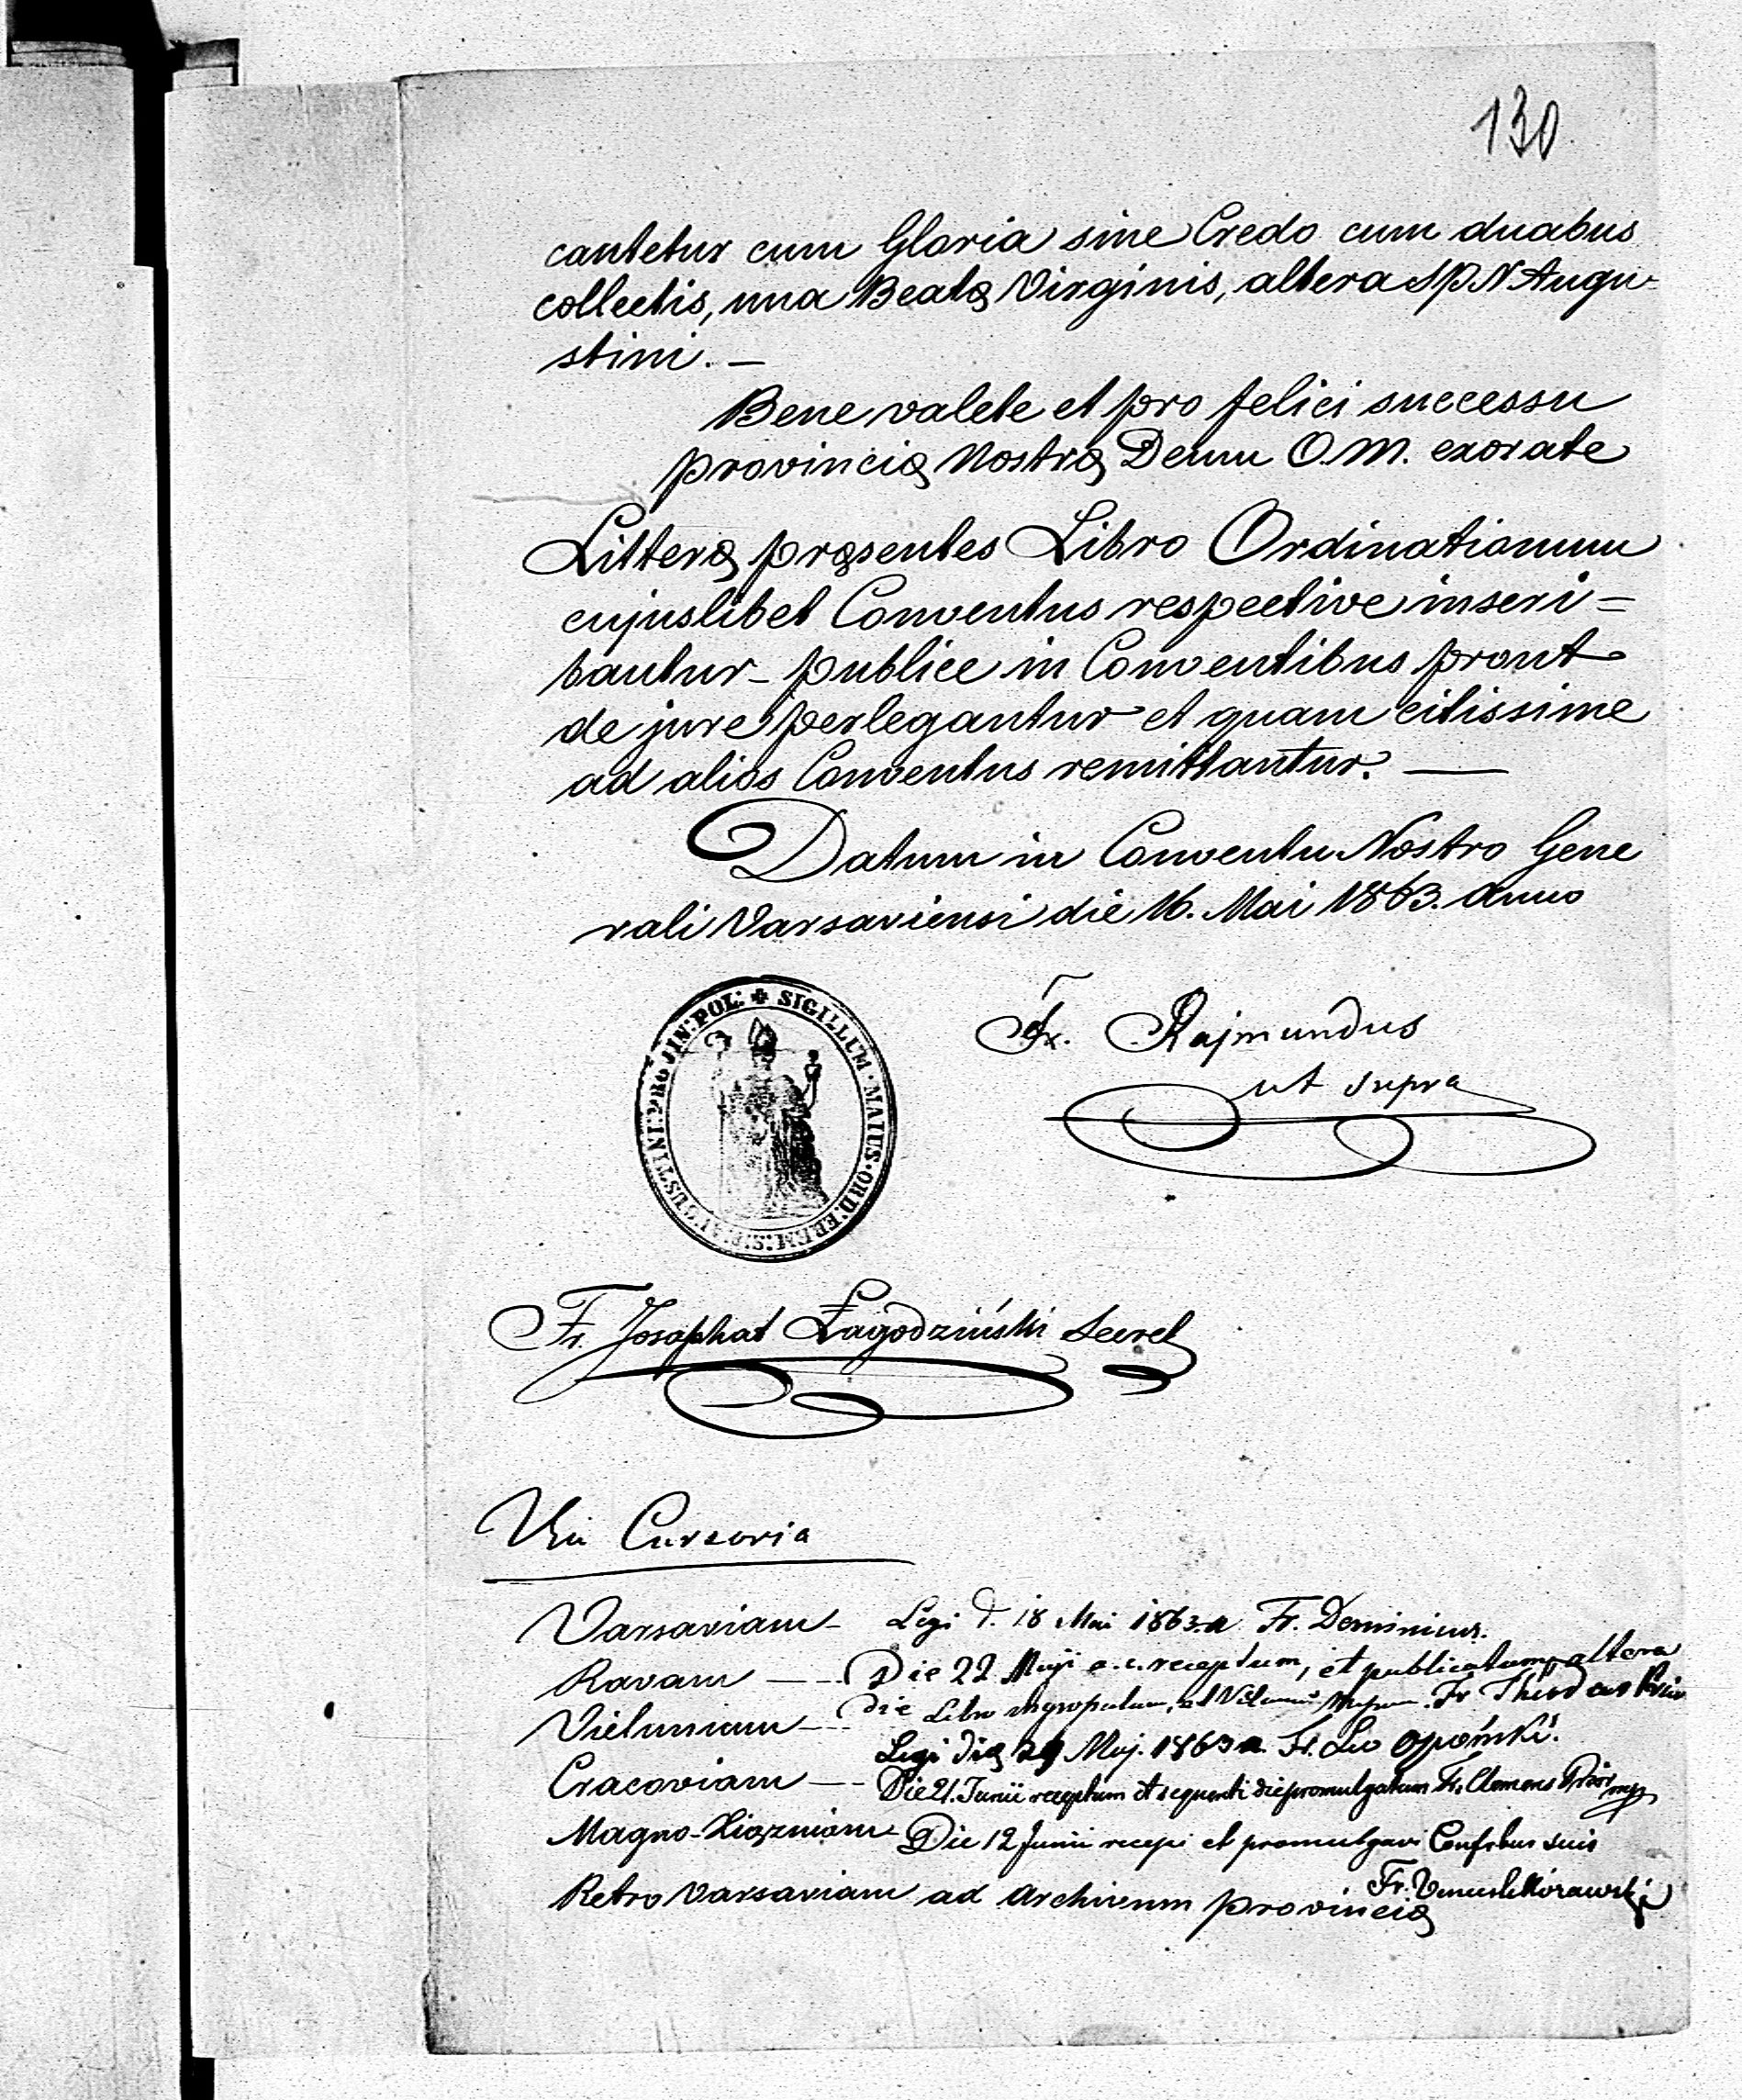 130
cantetur cum Gloria sine Credo cum duabus
collectis, una Beatæ Virginis, altera S P N Augu-
stini. —
Bene valete et pro felici successu
provinciæ Nostræ Deum O. M. exorate
Litteræ præsentes Libro Ordinationum
cujuslibet Conventus respective inseri=
bantur – publice in Conventibus prout
de jure perlegantur et quam citissime
ad alios Conventus remittantur. —
Datum in Conventu Nostro Gene
rali Varsaviensi die 16. Mai 1863. anno
SIGILLUM · MAIUS · ORD: EREM: S: P: AUGUSTINI: PROJIN: POL:
Fr. Rajmundus
ut supra
Fr. Josaphat Łagodziński Secret
Via Cursoria
Varsaviam – Legi d. 18 Mai 1863 a Fr. Dominicus.
Ravam — Die 22 Maji a. c. receptum, et publicatum, altera
die Libro ingrossatum, et Fr.
Vieluniam – Legi die 29 Maj. 1863 a. Fr. Leo
Cracoviam — Die 21. Junii receptum et sequenti die promulgatum Fr. Clemens Prior mp
Magno-Xiążniam – Die 12 Junii recepi et promulgavi Confrbus suis
Fr.
Retro Varsaviam ad Archivum provinciæ